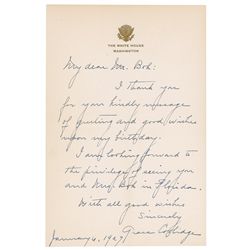 THE WHITE HOUSE
WASHINGTON
My dear Mr. Bok:
I thank you
for your kindly message
of greeting and good wishes
upon my birthday.
I am looking forward to
the privilege of seeing you
and Mrs. Bok in Florida.
With all good wishes
Sincerely
Grace Coolidge
January 6, 1927